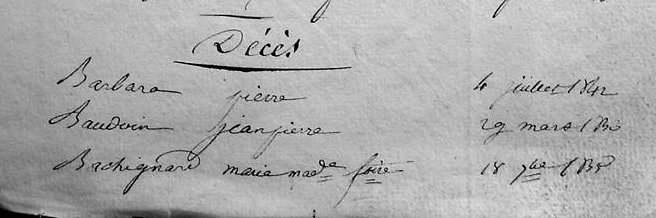 Décès
Barbara pierre 4 juillet 1842
Baudoin jeanpierre 29 mars
Bachignard marie mad.e 18 7bre